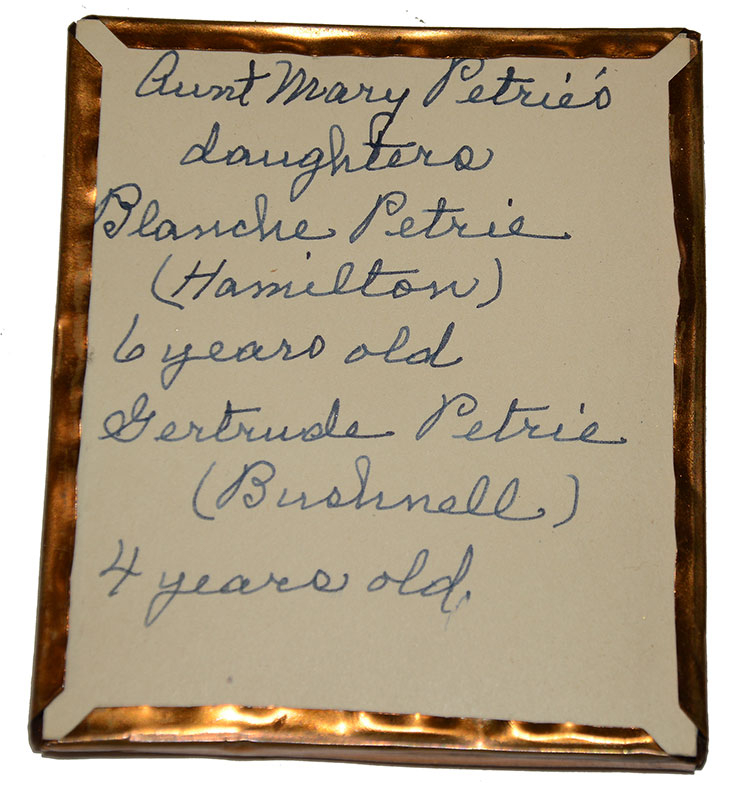 Aunt Mary Petrie's
daughters
Blanche Petrie
(Hamilton)
6 years old
Gertrude Petrie
(Bushnell)
4 years old.